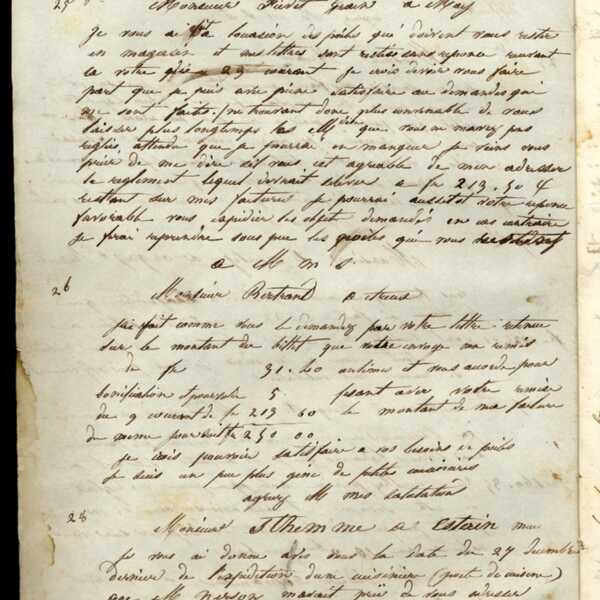 25 Monsieur Pierret Grain a May
Je vous ai dit la livraison des poêles qui doivent vous rester
en magasin et mes lettres sont restées sans reponce suivant
la votre 23 courant Je crois devoir vous faire
part que je puis avec peine satisfaire au demandes qui
me sont faites. ne trouvant donc plus convenable de vous
laisser plus longtemps les Mdises que vous ne m'avez pas
reglés, attendu que je pourrai en manquer je viens vous
prier de me dire s'il vous est agreable de m'en adresser
le reglement lequel s'élever a fr 213.50
restant sur mes factures je pourrai aussitot votre reponce
favorable vous expidier les objet demandés en cas contraire
je ferai reprendre sous peu les poêles qui vous
a M m s
26 Monsieur Bertrand a
j'ai fait comme vous le demandez par votre lettre retenue
sur le montant du billet que votre envoye ma remis
de fr 31.60 centimes et vous accorde pour
bonification 5 fesant avec votre remise
du 9 courant de fr 213 60 le montant de ma facture
de meme 250 00
je crois pouvoir satisfaire a vos besoins de poêles
je suis un peu plus géné de petites cuisinières
agreez M mes salutations
28 Monsieur Sthemme a
je vous ai donné avis sous la date du 27 decembre
dernier de l'expédition d'une cuisinière (poele de cuisine)
que M m'avait prié de vous adresser